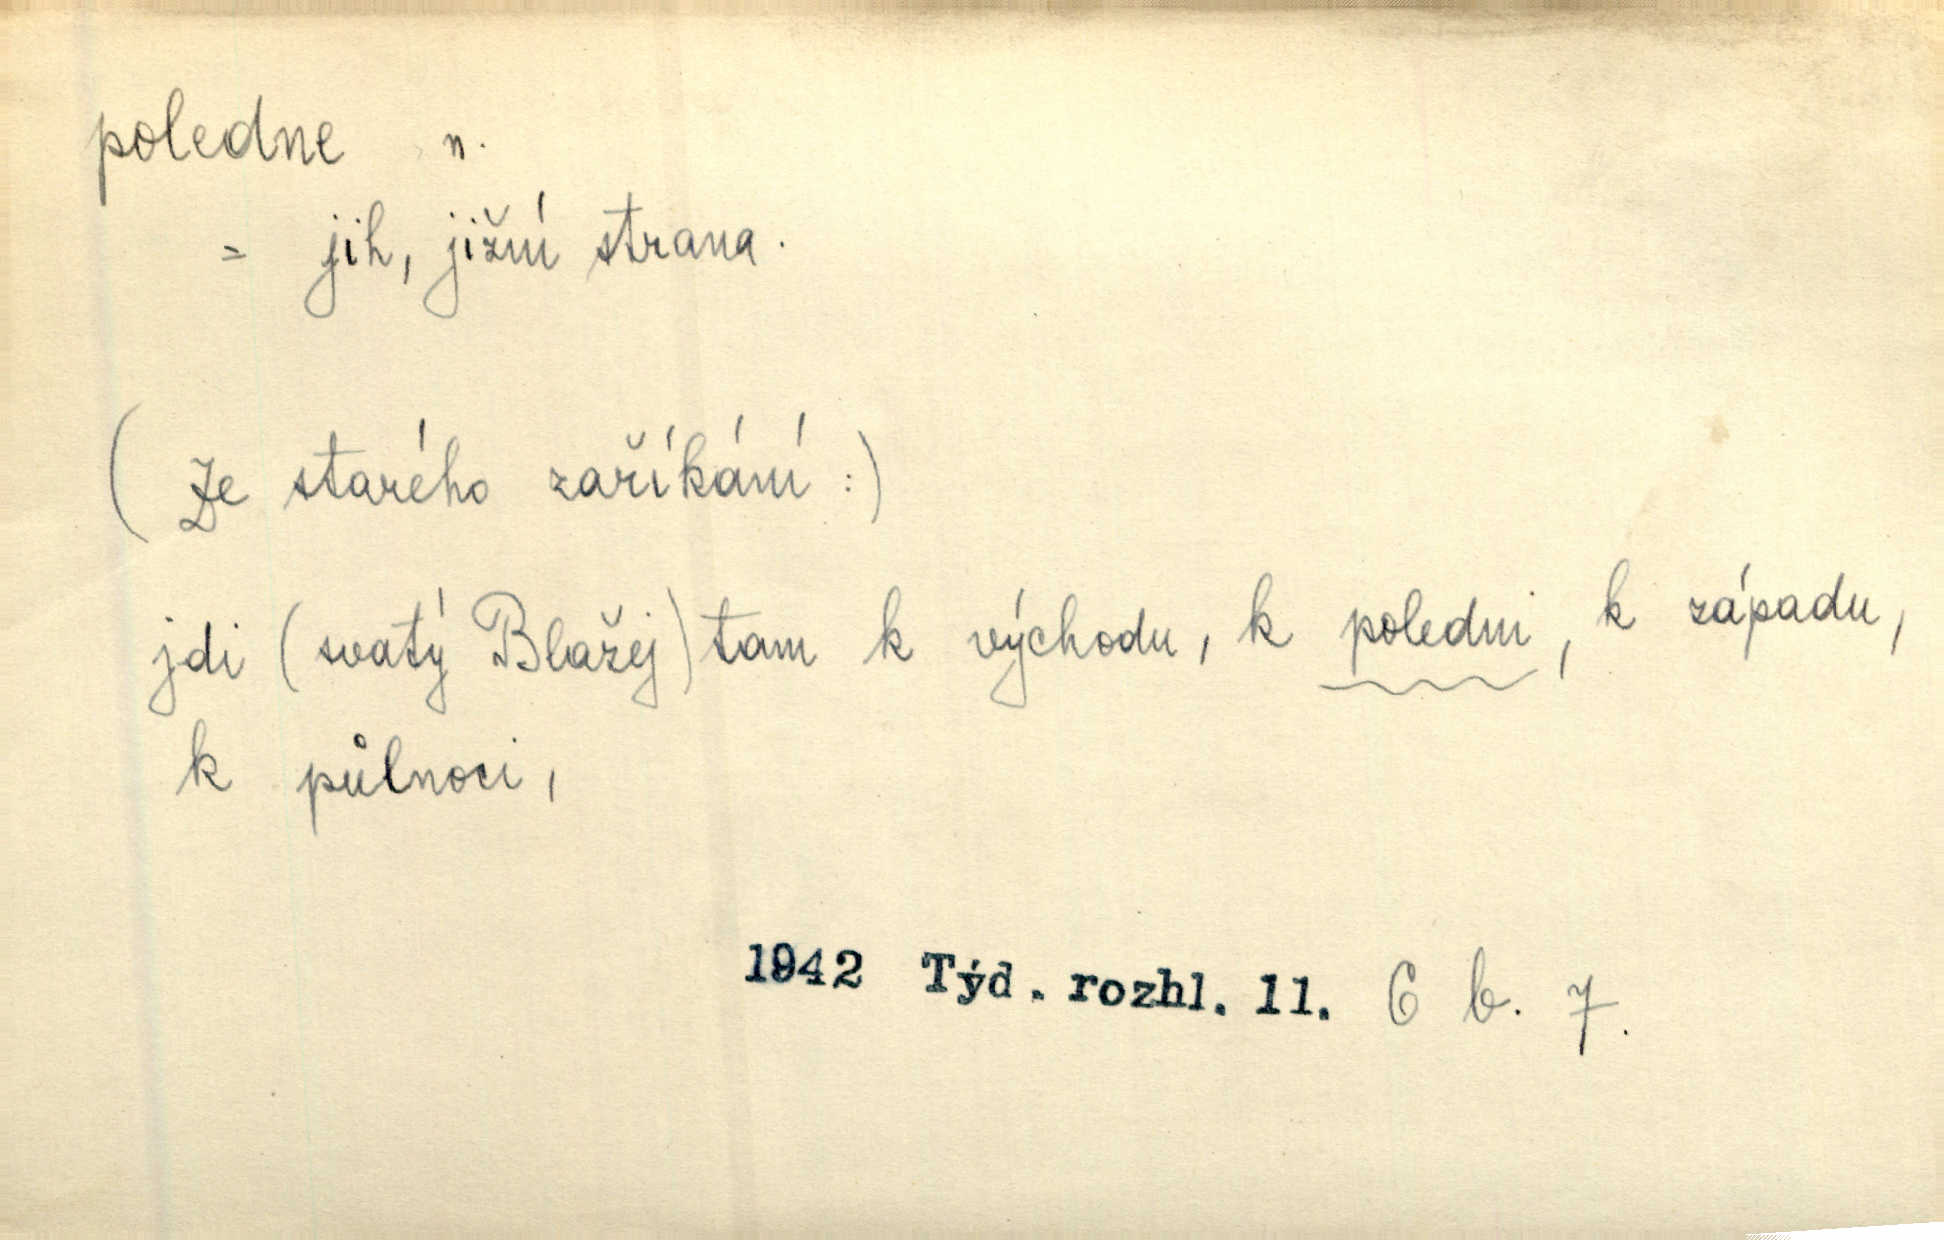 poledne n.
= jih, jižní strana.
(Ze starého zaříkání:)
jdi (svatý Blažej) tam k východu, k poledni, k západu,
k půlnoci,
1942 Týd. rozhl. 11. 6 b. 7.